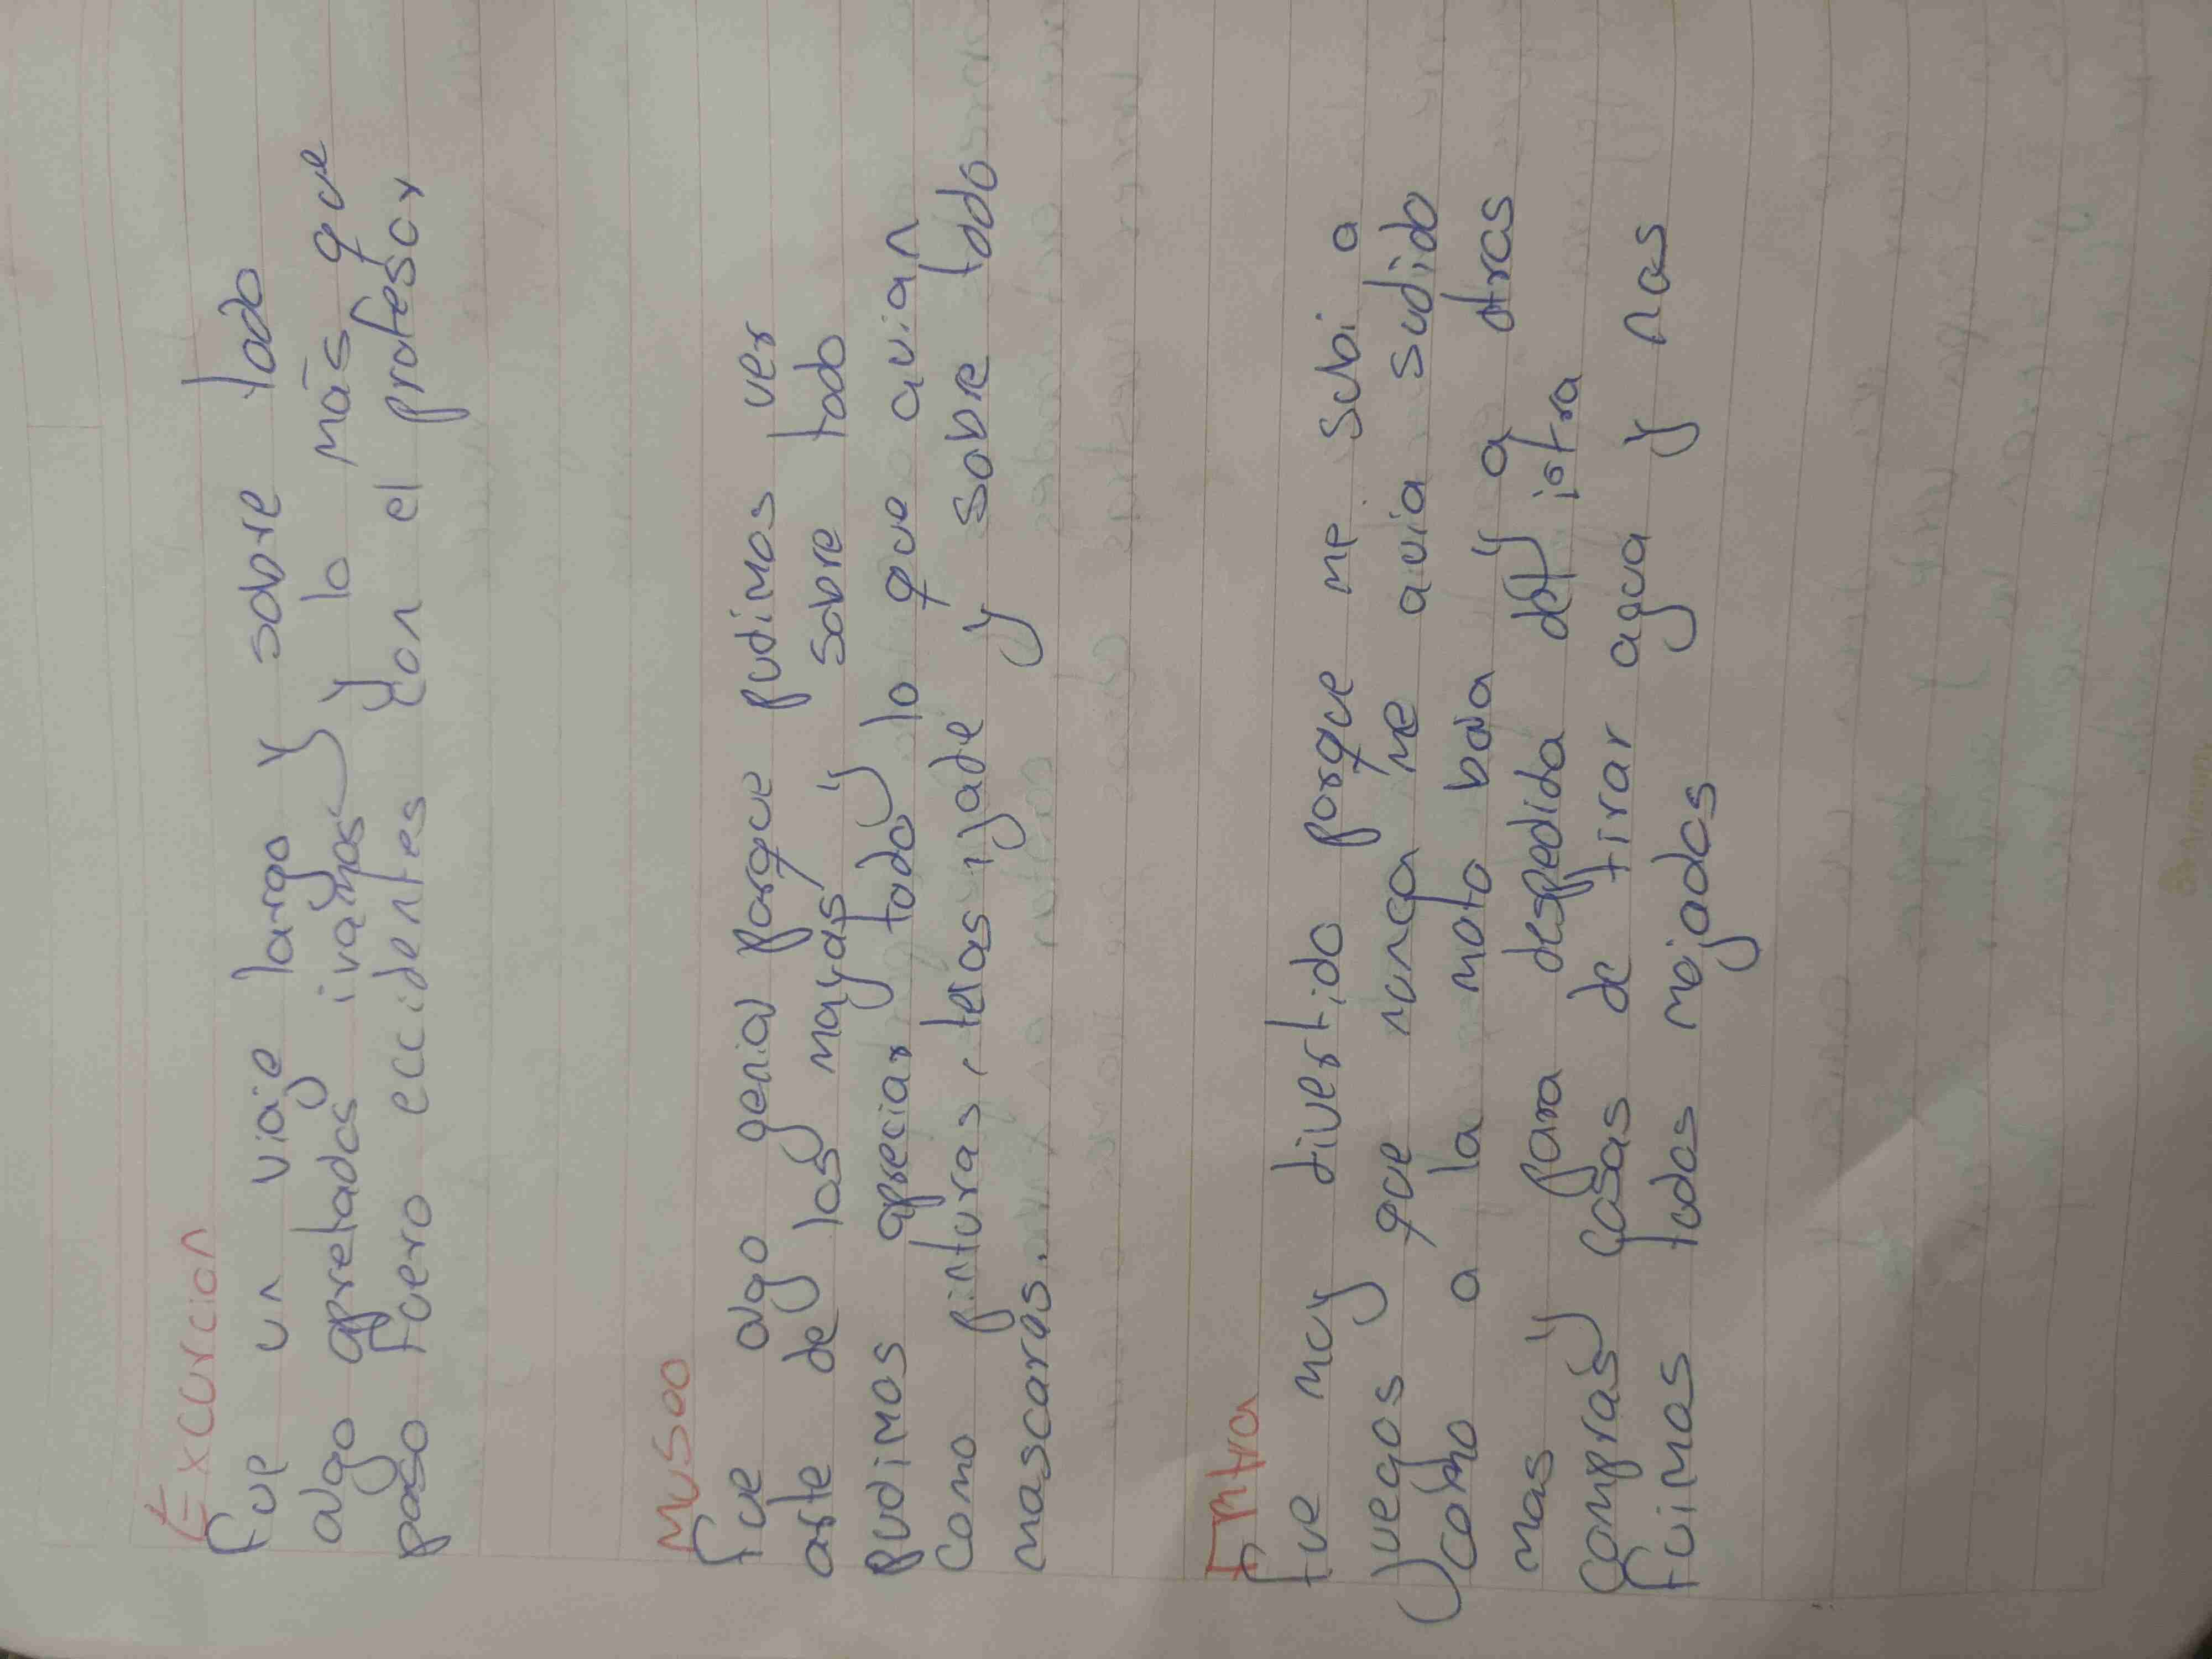 Excurcion
Fue un viaje largo y sobre todo
algo apretados ivamos y lo más que
paso fuero eccidentes con el profesor
Musoo
Fue algo genial porque pudimos ver
arte de los mayas y sobre todo
pudimos apreciar todo lo que avian
como pinturas, telas, jade y sobre todo
mascaras.
Fue muy divertido porque me subi a
juegos que nunca me avia sudido
como a la moto bava y a otras
mas y para despedida del
compras casas de tirar agua y nas
fuimos todos mojados